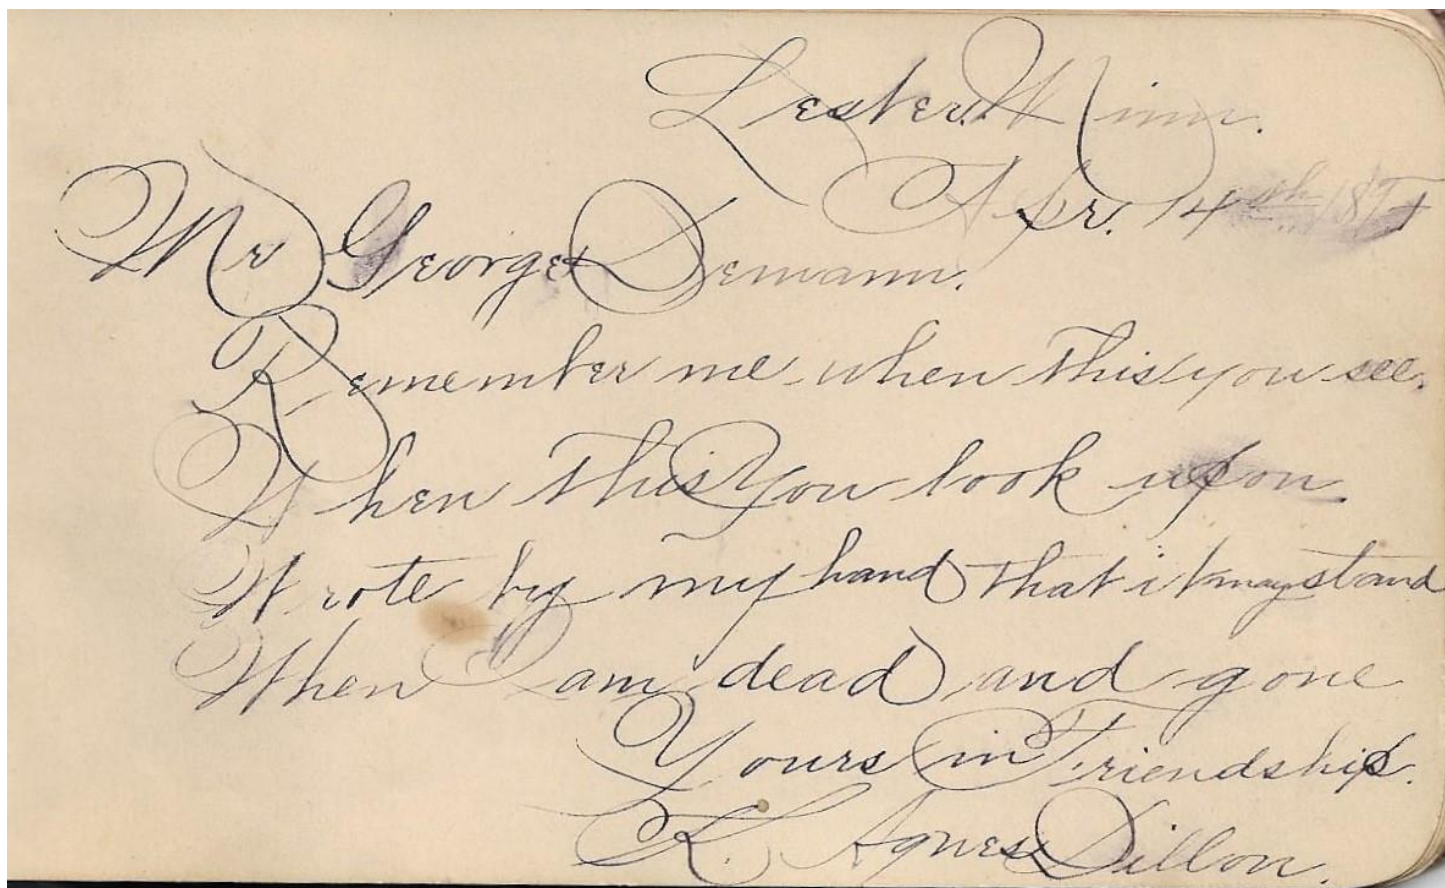 Lester, Minn.
Apr. 14th 18
Mr George Demann.
Remember me when this you see.
When this You look upon
Wrote by my hand that it may stand
When I am dead and gone
Yours in Friendship.
K. Agnes Dillon.